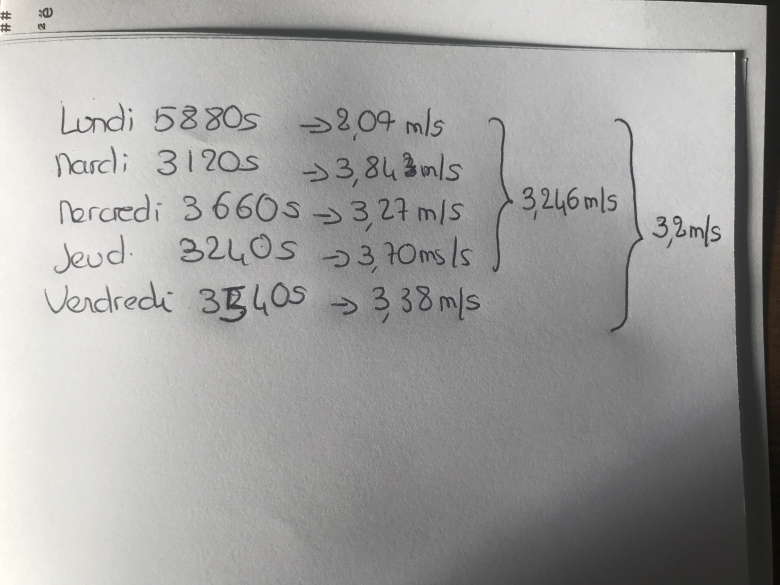 ##
a ë
Lundi 5880s → 2,04 m/s
Mardi 3120s → 3,84 m/s
Mercredi 3660s → 3,27 m/s
Jeudi 3240s → 3,70ms/s
Vendredi 3540s → 3,38m/s
3,246m/s
3,2m/s